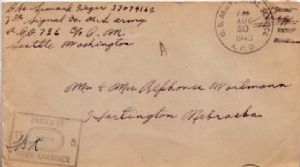 Pvt. Lenark Zager 37074162
7th Signal Co. U.S. Army
A.P.O. 726 c/o P.M.
Seattle Washington
U.S. ARMY POSTAL SERVICE
AUG
30
1943
A.P.O.
A
Mr & Mrs Alphonse Wortmann
Hartington Nebraska
PASSED BY
ARMY EXAMINER
S